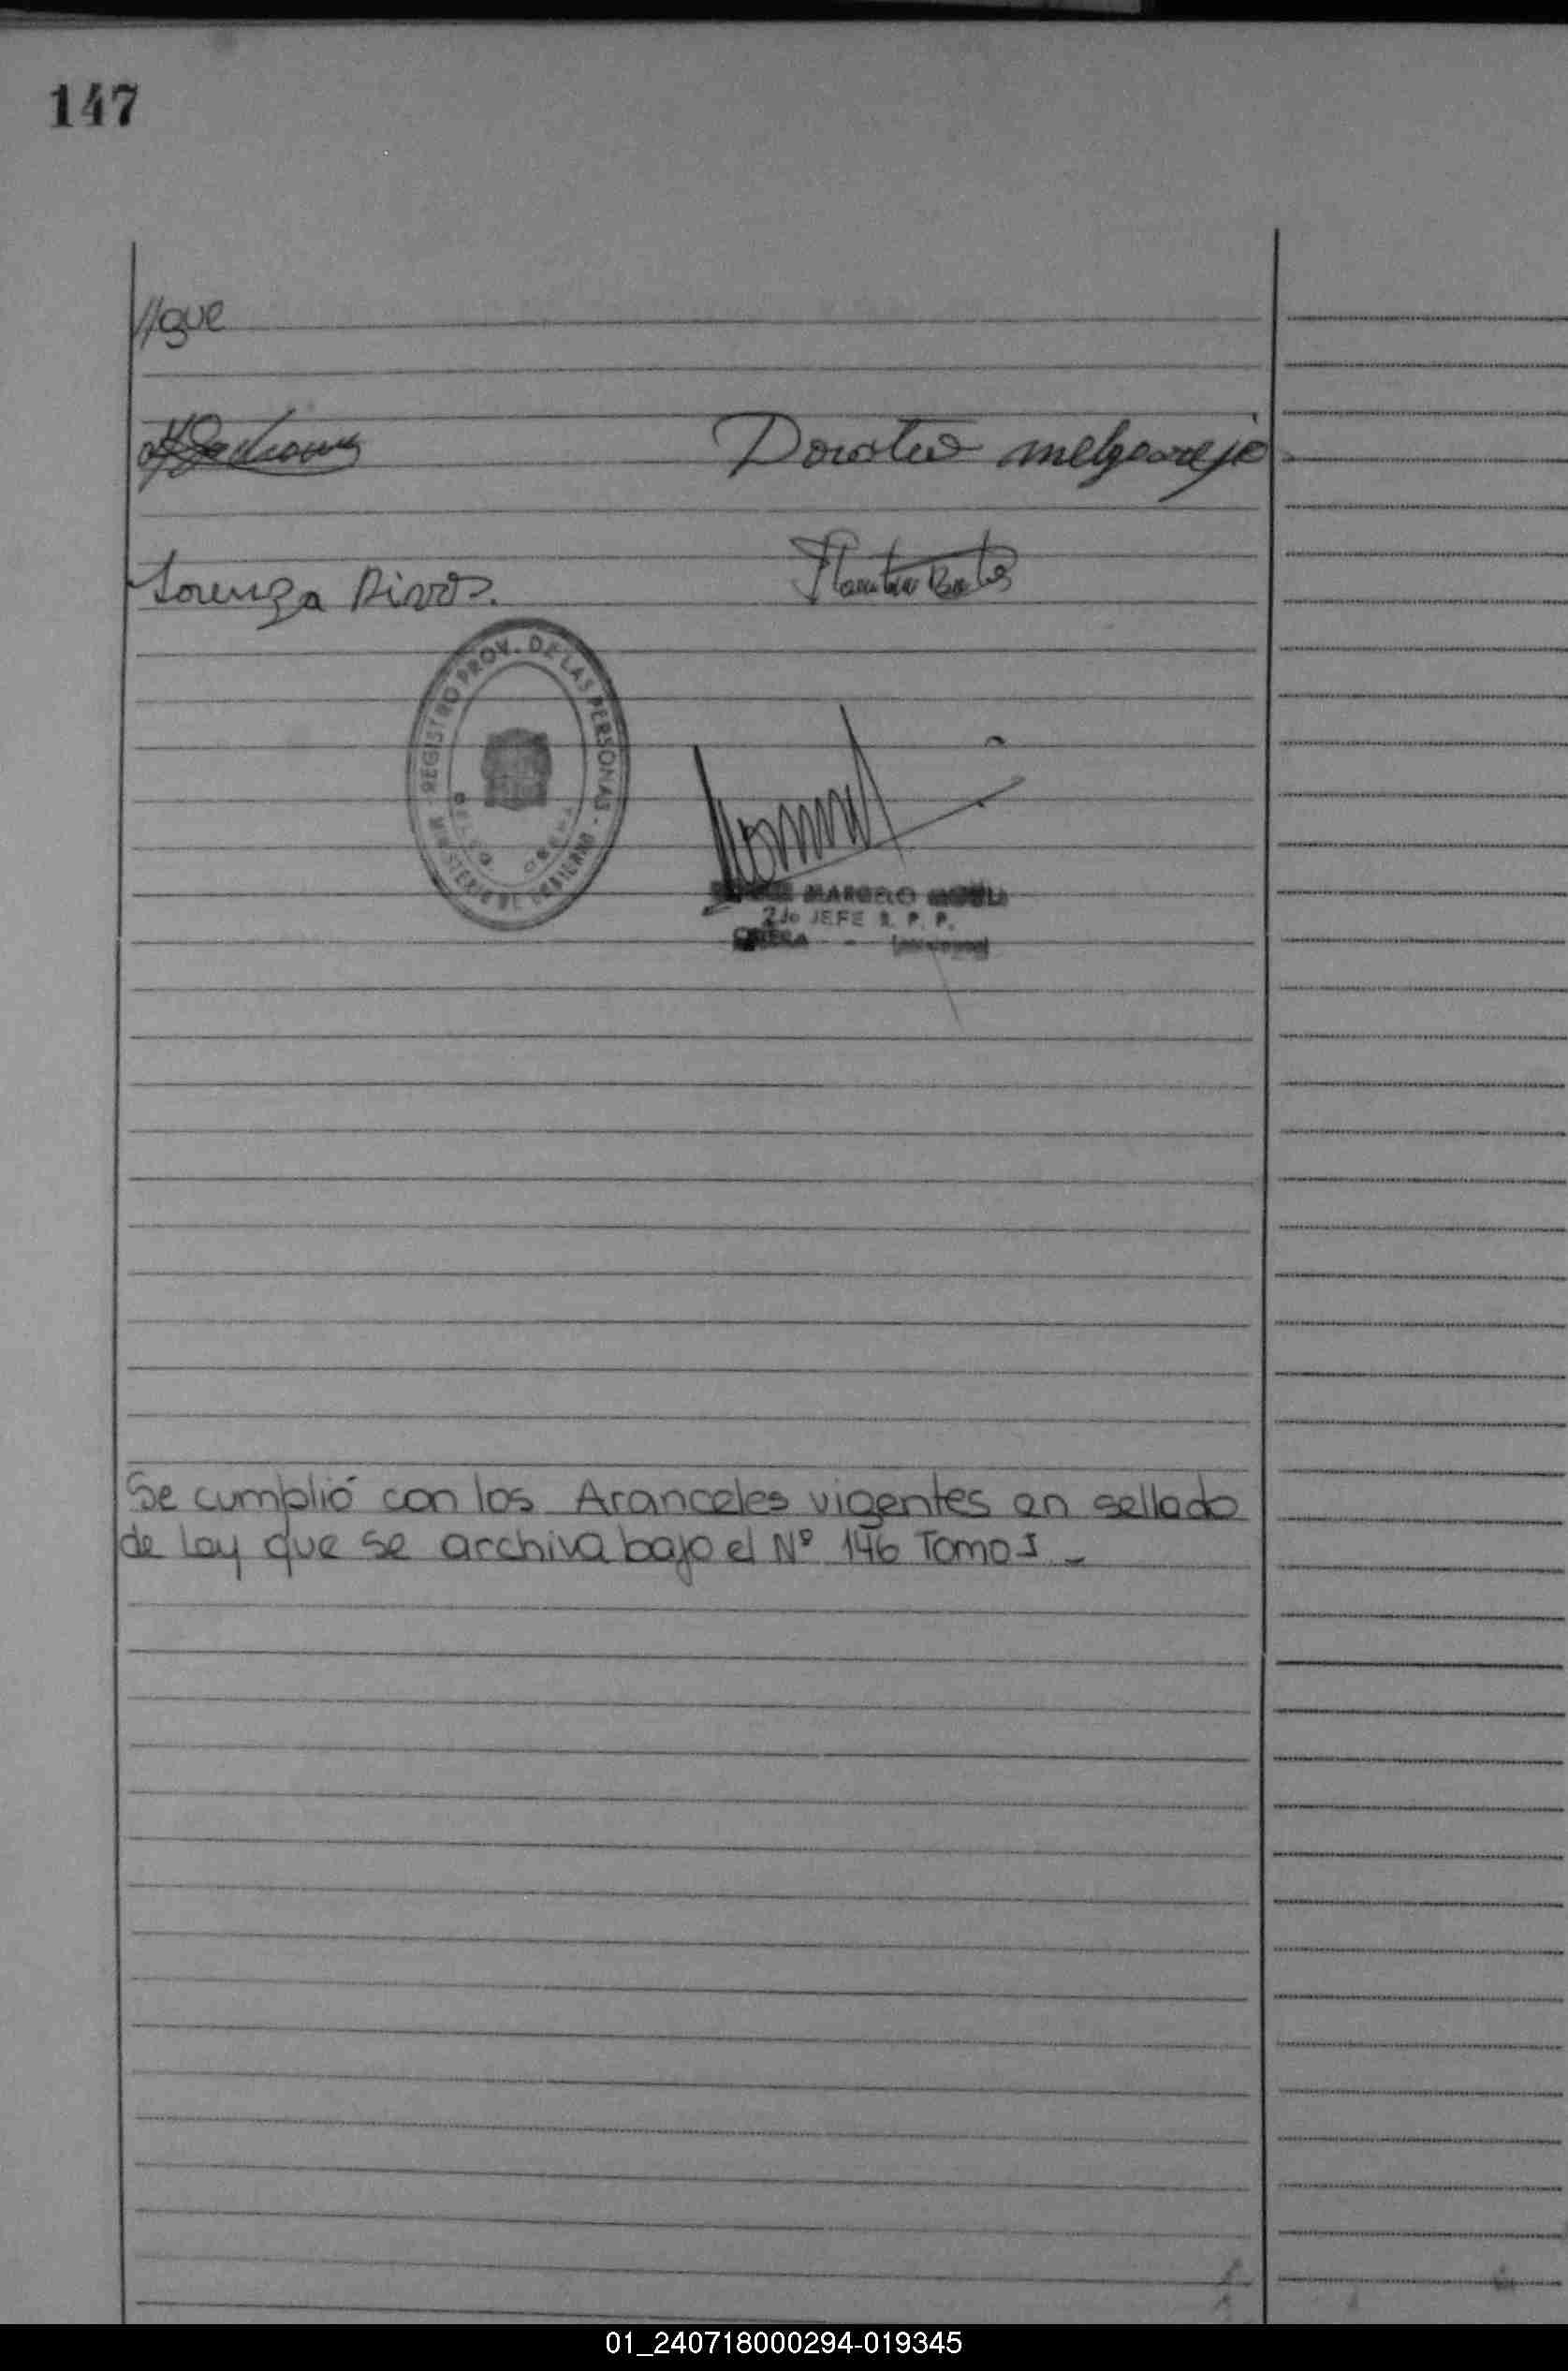 147
//gue
Dorotea melgarejo
Lorenza Rivas.
REGISTRO PROV. DE LAS PERSONAS - MINISTERIO DE GOBIERNO -
MARCELO
2do JEFE R. P. P.
OBERA - -
Se cumplió con los Aranceles vigentes en sellado
de Ley que se archiva bajo el Nº 146 Tomo I -
01_240718000294-019345